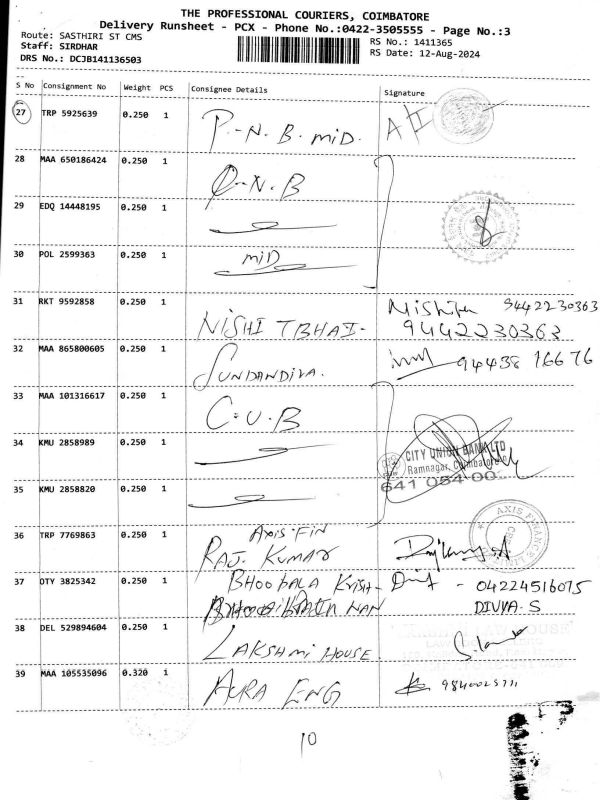 THE PROFESSIONAL COURIERS, COIMBATORE
Delivery Runsheet - PCX - Phone No.:0422-3505555 - Page No.:3
Route: SASTHIRI ST CMS
RS No.: 1411365
Staff: SIRDHAR
RS Date: 12-Aug-2024
DRS No.: DCJB141136503
S No Consignment No Weight PCS Consignee Details Signature
27 TRP 5925639 0.250 1 P.-N.B. MID.
28 MAA 650186424 0.250 1 P.-N.B
29 EDQ 14448195 0.250 1
30 POL 2599363 0.250 1 MID
31 RKT 9592858 0.250 1 NISHI TBHAI- 9442230363
9442230363
32 MAA 865800605 0.250 1 SUNDANDIYA. 94438 16676
33 MAA 101316617 0.250 1 C.U.B
34 KMU 2858989 0.250 1
CITY UNION BANK LTD
Ramnagar, Coimbatore
641 054 00
35 KMU 2858820 0.250 1
AXIS FINANCE
36 TRP 7769863 0.250 1 AXIS FIN
RAJ. KUMAR
37 DTY 3825342 0.250 1 BHOOPALA KRISH- 04224516075
NAN DIVYA. S
38 DEL 529894604 0.250 1 LAKSHMI HOUSE
39 MAA 105535096 0.320 1 AURA ENG
10